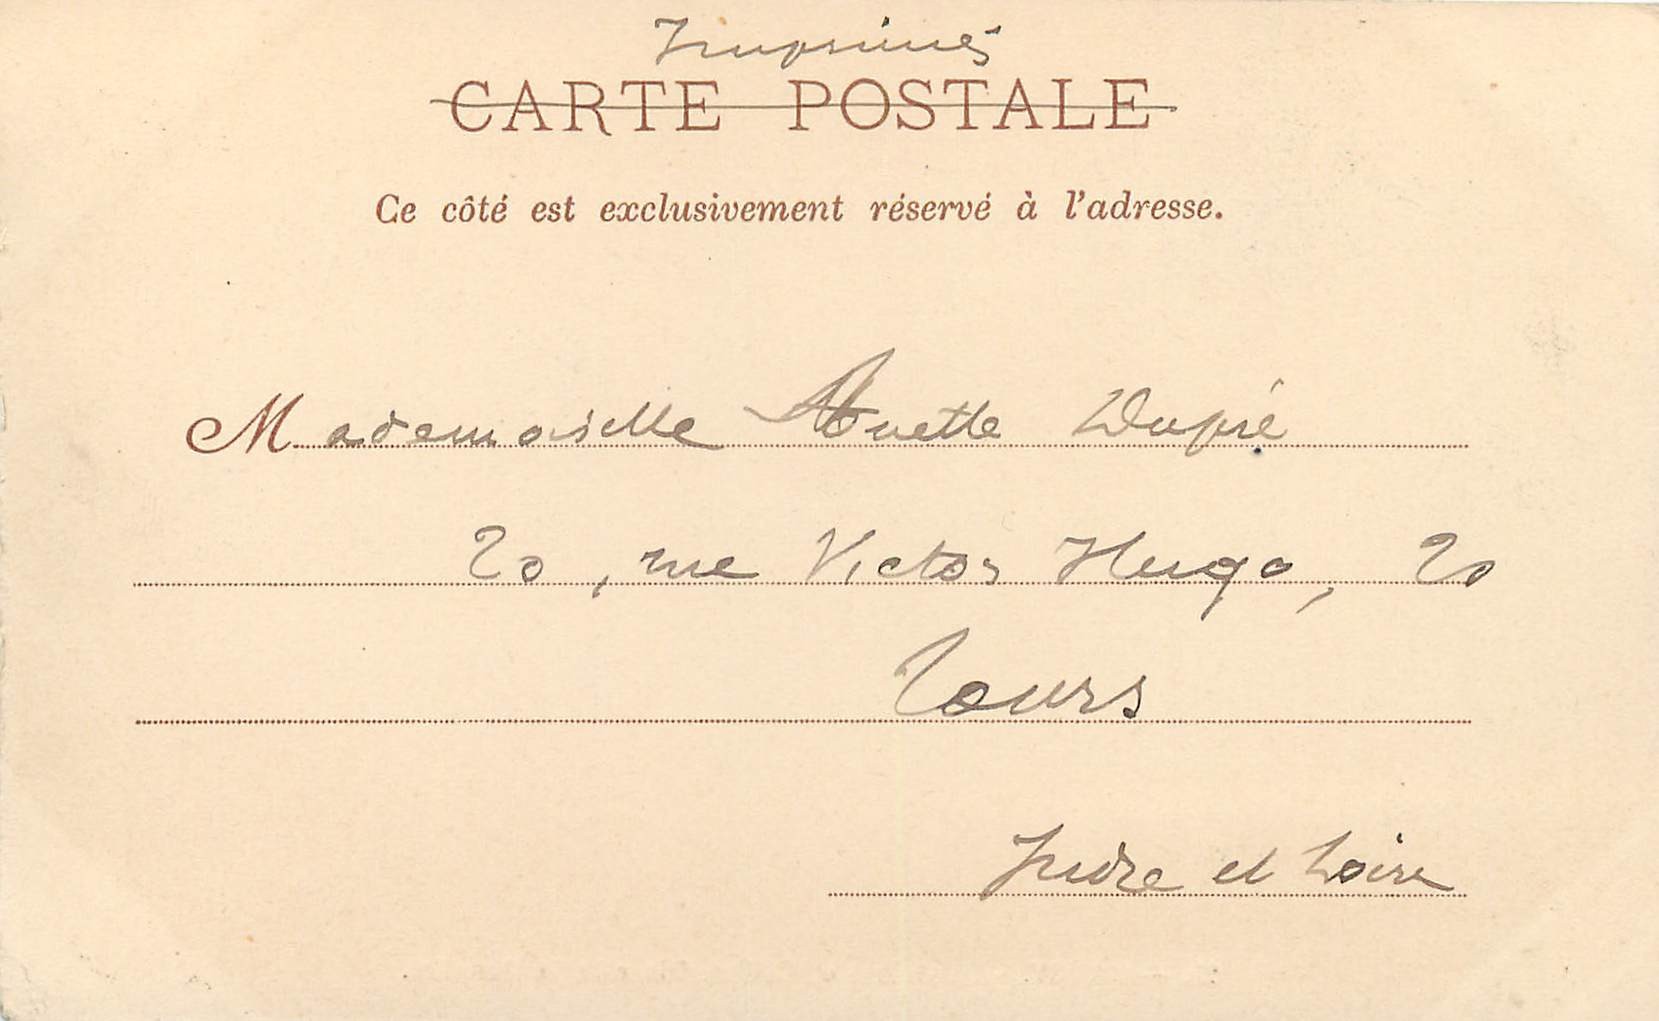 Imprimés
CARTE POSTALE
Ce côté est exclusivement réservé à l'adresse.
Mademoiselle Dupré
20, rue Victor Hugo, 20
Tours
Indre et Loire